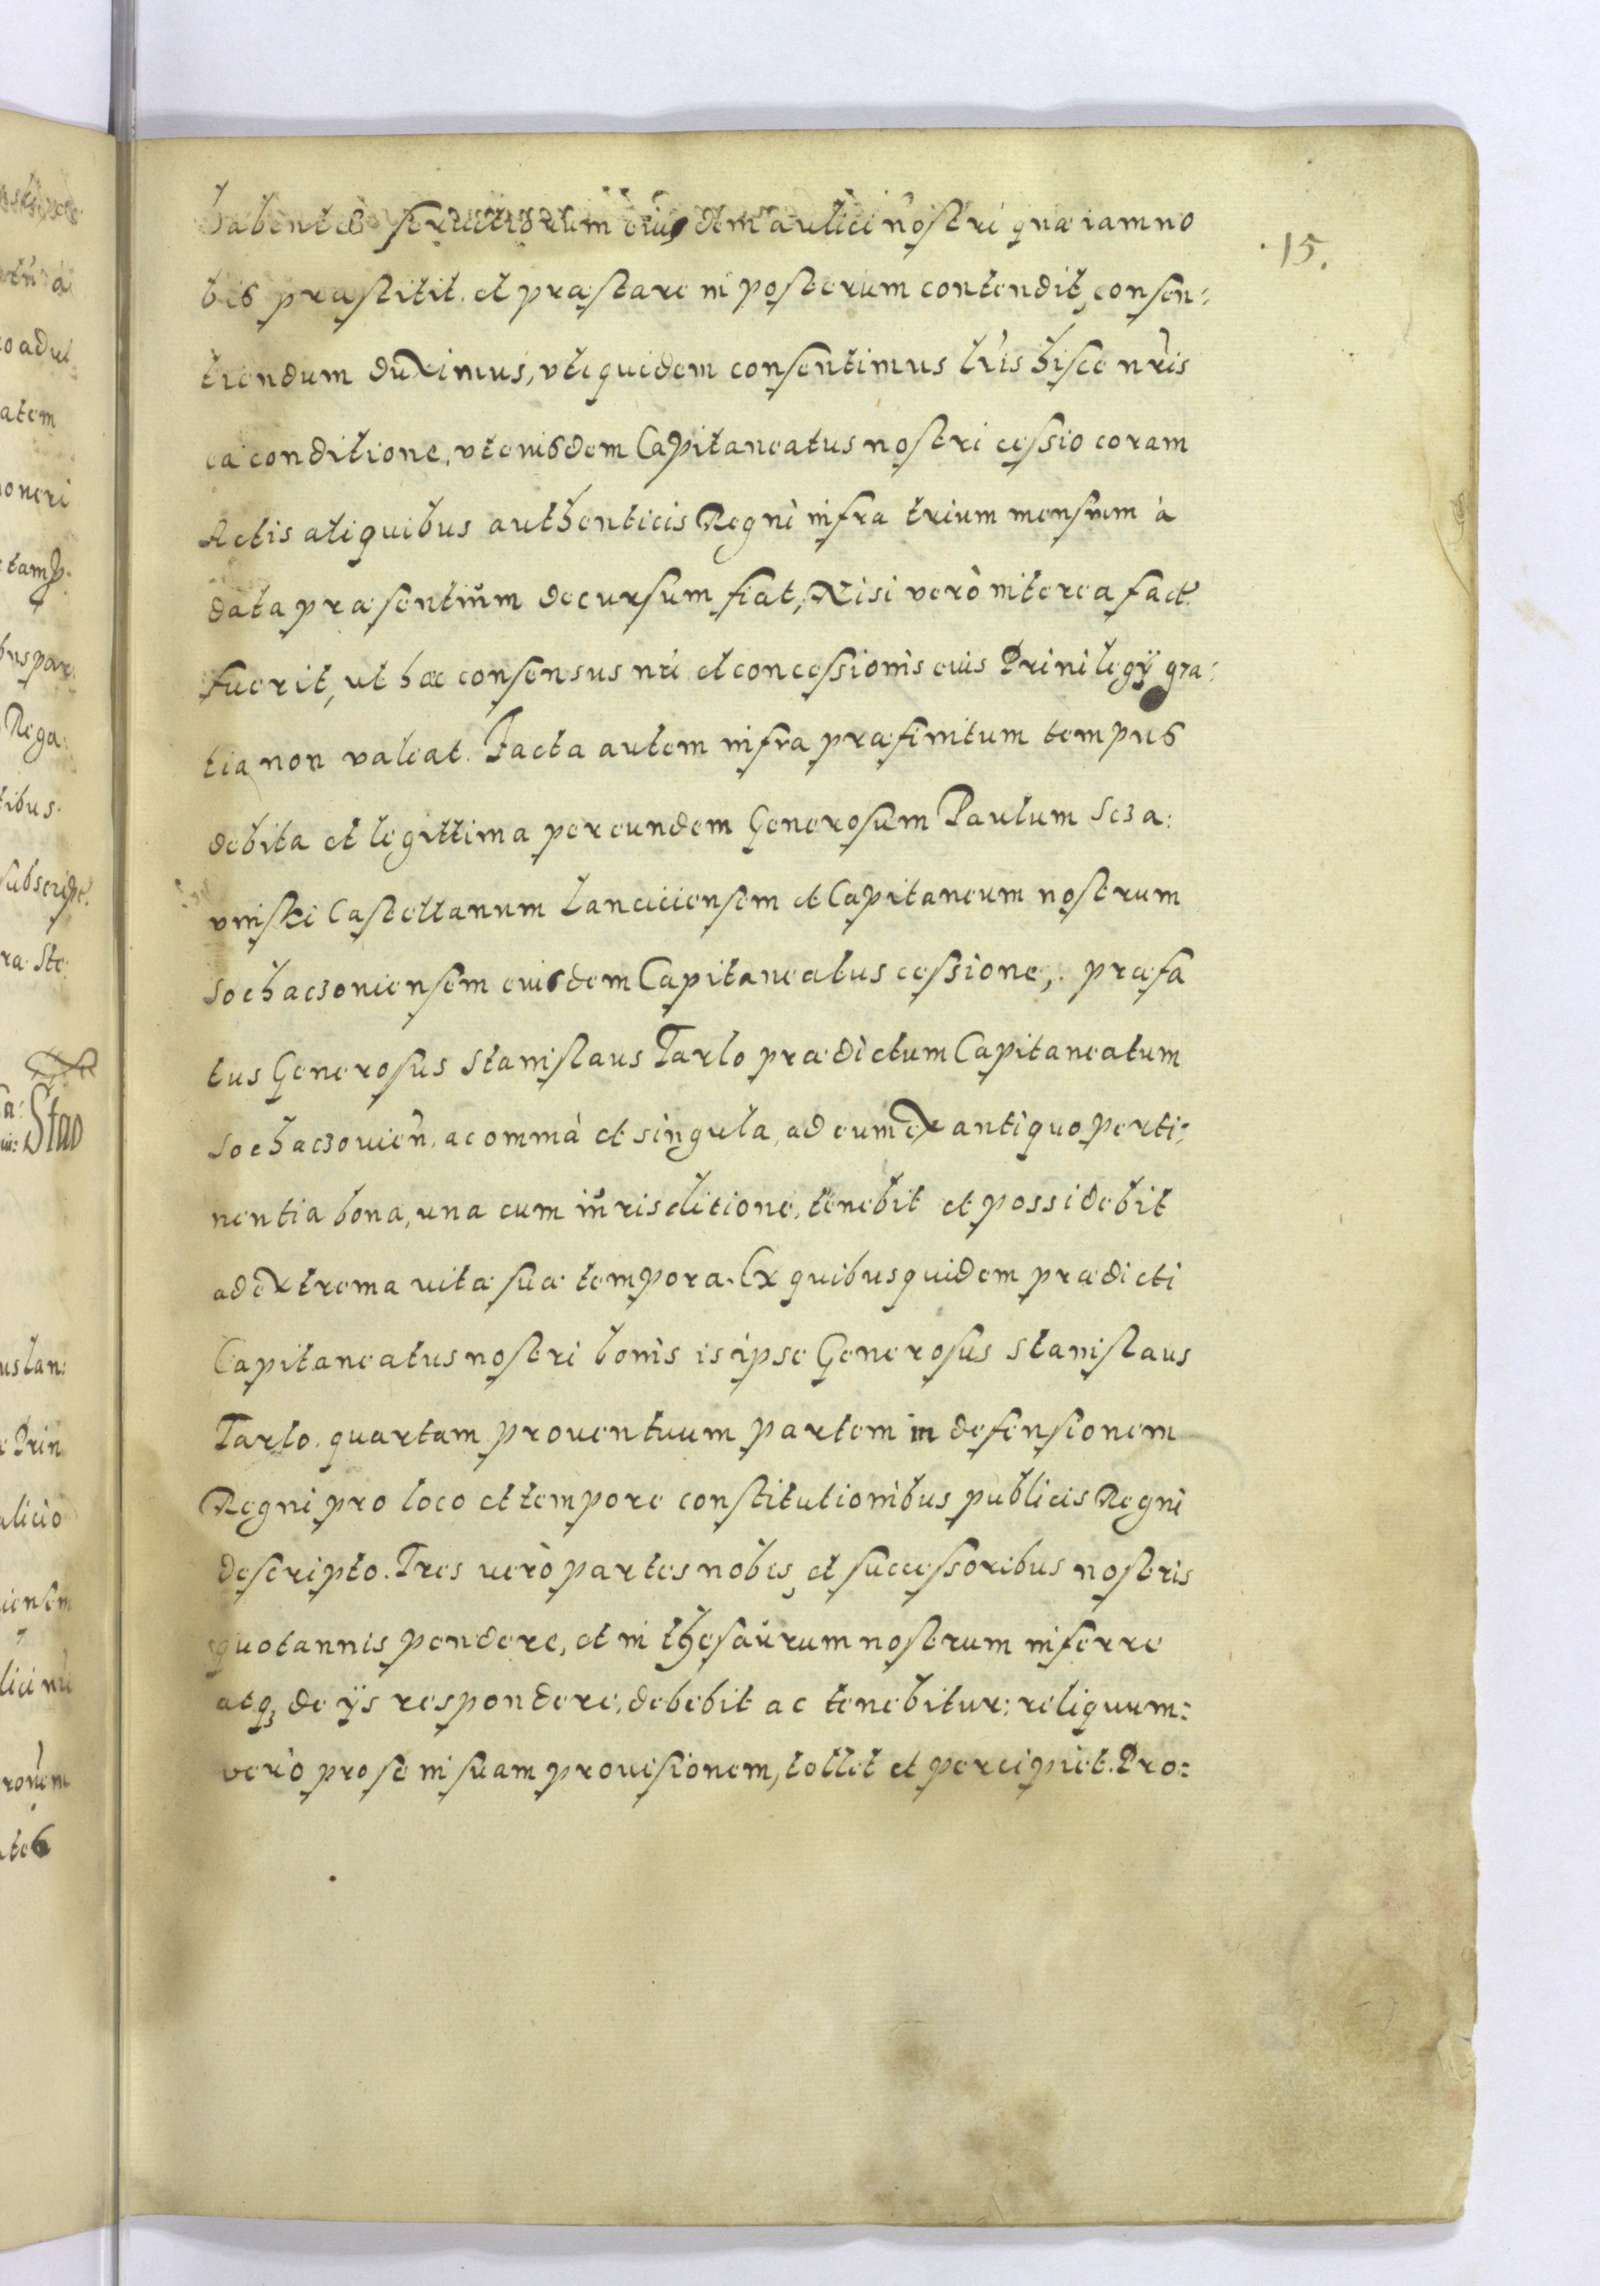 habentes servitiorum eiusdem aulici nostri quæ iam no
bis præstitit. et præstare in posterum contendit, consen:
tiendum duximus, uti quidem consentimus lr̃is hisce nr̃is
ea conditione, ut eiusdem Capitaneatus nostri cessio coram
Actis aliquibus authenticis Regni infra trium mensium à
data præsentium decursum fiat, Nisi verò interea fact.
fuerit, ut hæc consensus nr̃i et concessionis eius Privilegÿ gra:
tia non valeat. Facta autem infra præfinitum tempus
debita et legittima per eundem Generosum Paulum Scza:
vinski Castellanum Lanciciensem et Capitaneum nostrum
Sochaczoviensem eiusdem Capitaneatus cessione, præfa
tus Generosus Stanislaus Tarlo prædictum Capitaneatum
Sochaczovieñ. ac omnià et singula, ad eum ex antiquo perti:
nentia bona, una cum iurisditione, tenebit et possidebit
ad extrema vitæ suæ tempora. Ex quibus quidem prædicti
Capitaneatus nostri bonis is ipse Generosus Stanislaus
Tarlo. quartam proventuum partem in defensionem
Regni pro loco et tempore constitutionibus publicis Regni
descripto. Tres verò partes nobis, et successoribus nostris
quotannis pendere, et in thesaurum nostrum inferre
atq, de ÿs respondere, debebit ac tenebitur: reliquum:
verò pro se in suam provisionem, tollet et percipiet. Pro:
15.